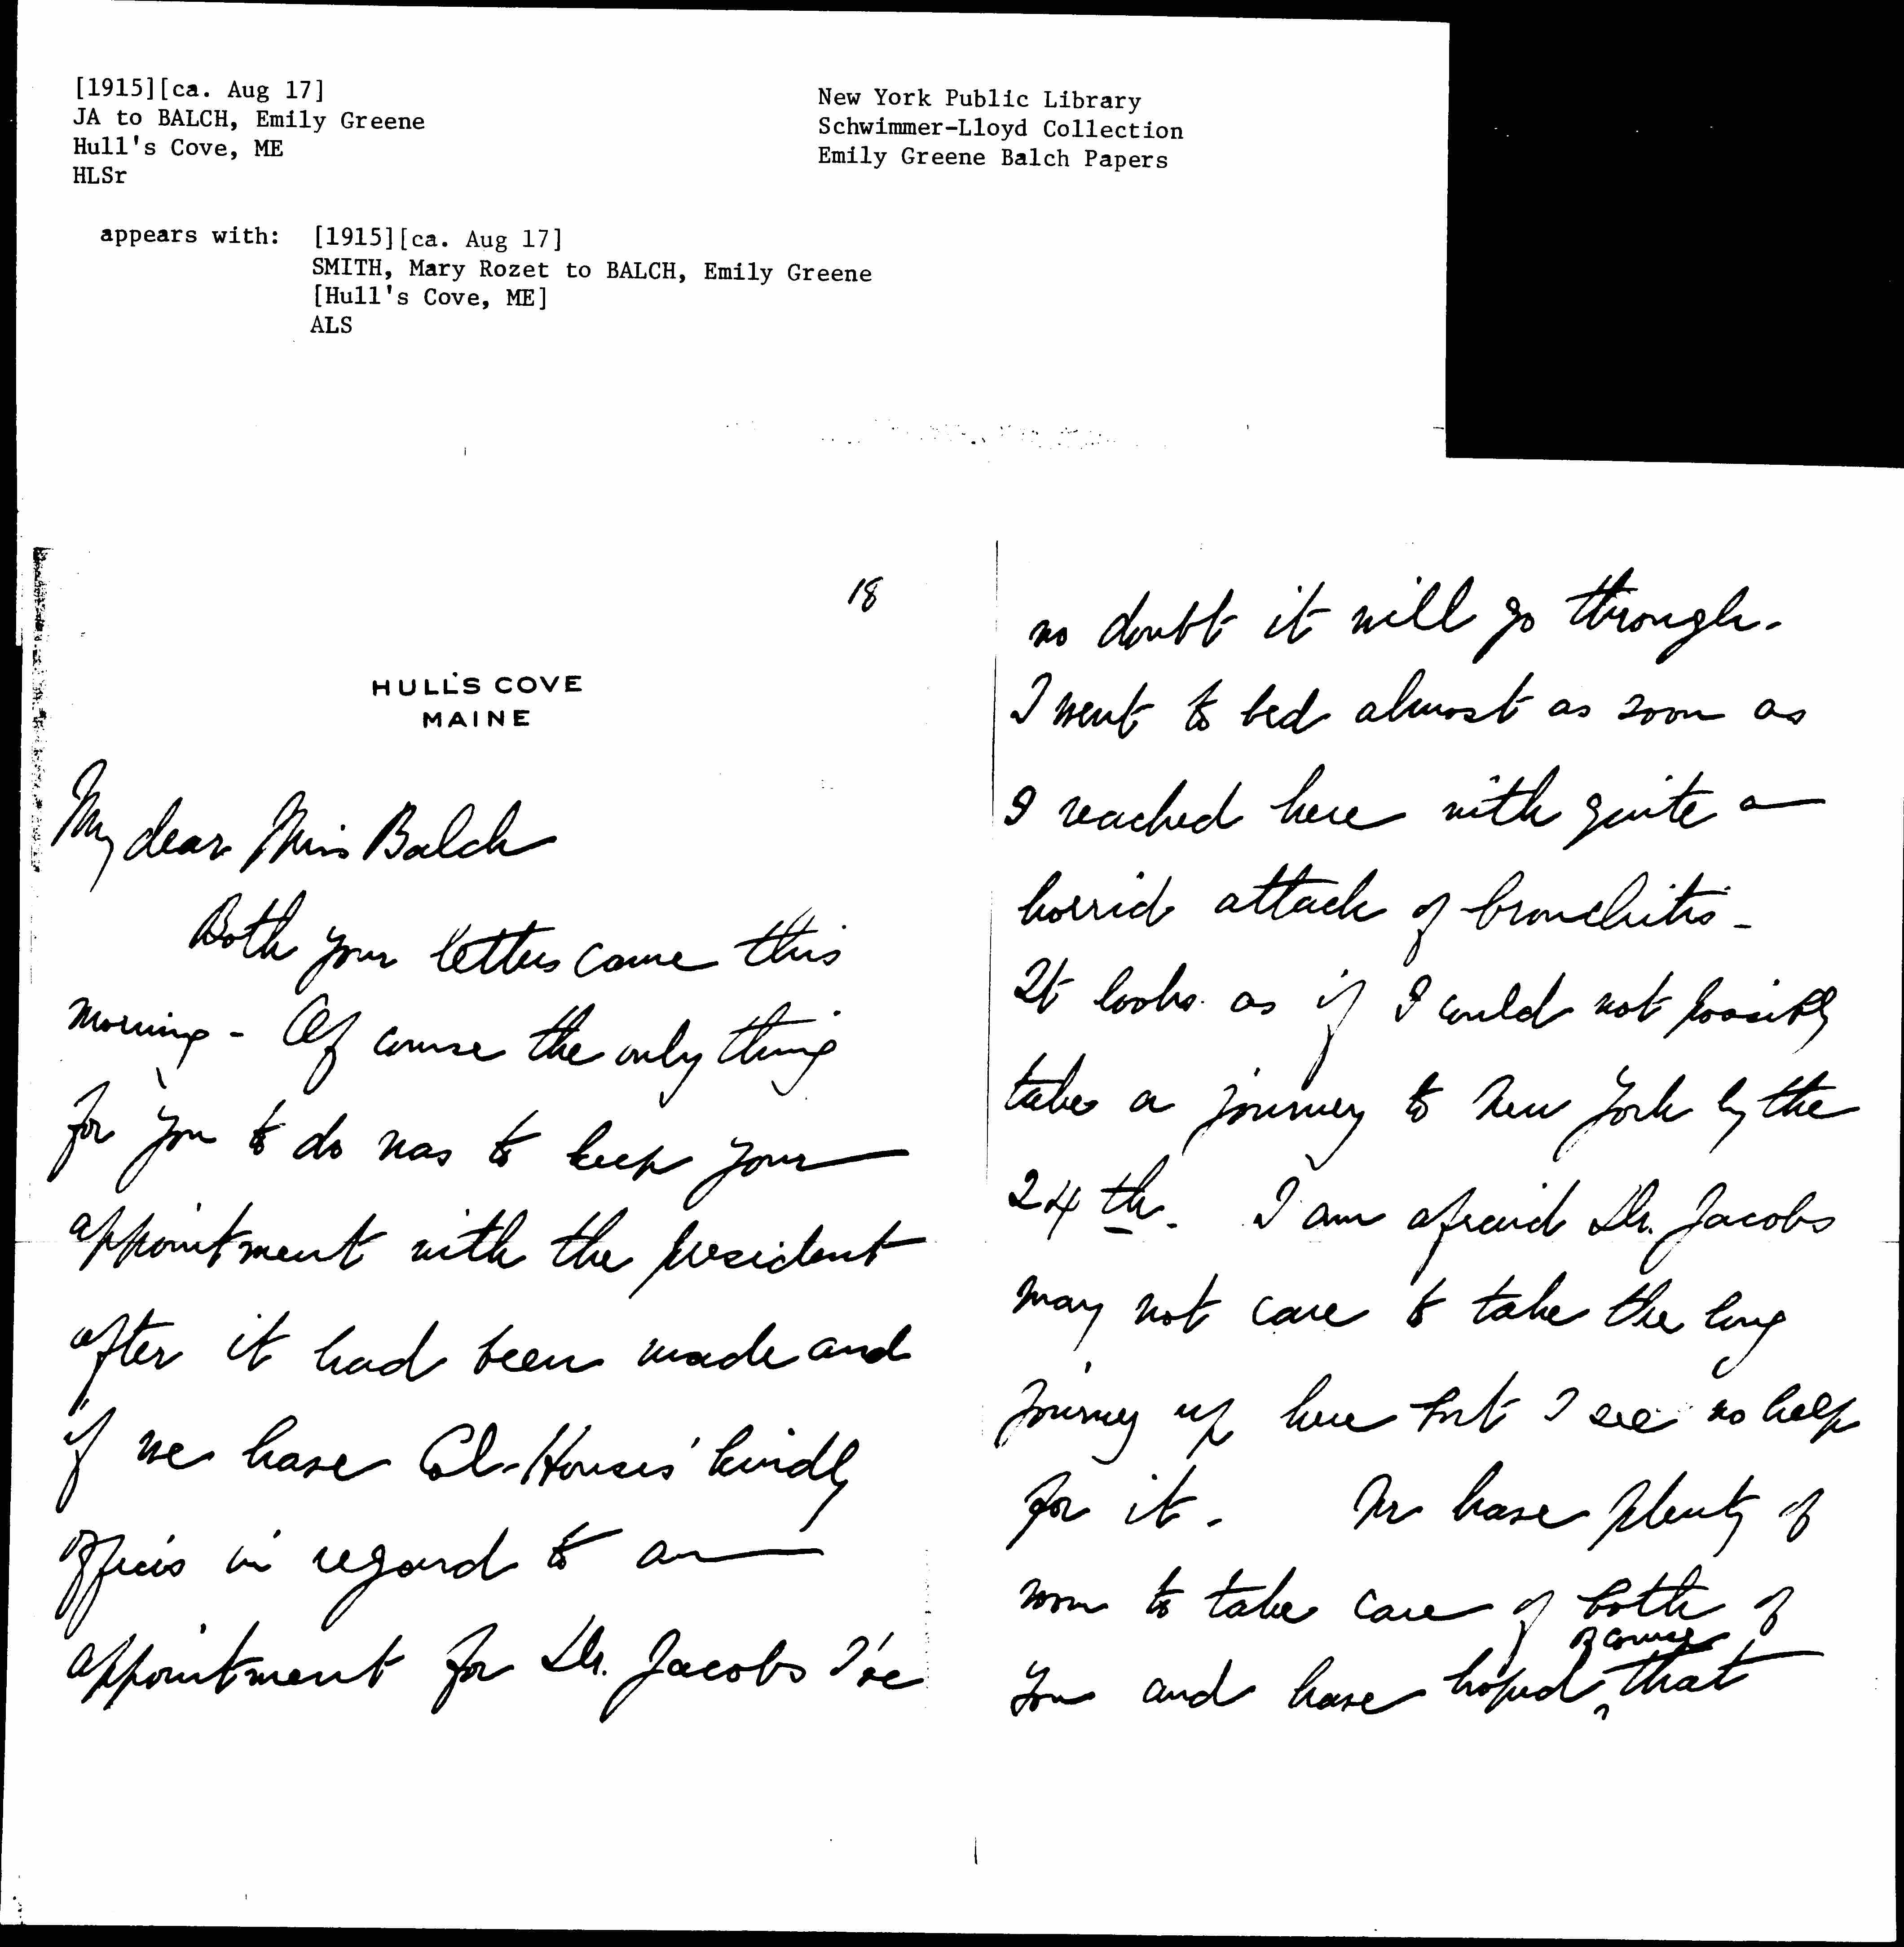 [1915][ca. Aug 17]
JA to BALCH, Emily Greene
Hull's Cove, ME
HLSr
New York Public Library
Schwimmer-Lloyd Collection
Emily Greene Balch Papers
appears with: [1915][ca. Aug 17]
SMITH, Mary Rozet to BALCH, Emily Greene
[Hull's Cove, ME]
ALS
18
HULL'S COVE
MAINE
My dear Miss Balch
Both your letters came this
morning - Of course the only thing
for you to do was to keep your
appointment with the president
after it had been made and
if we have Col. Houses' kindly
offices in regard to an
appointment for Dr. Jacobs I've
no doubt it will go through.
I went to bed almost as soon as
I reached here with quite a
horrid attack of bronchitis -
It looks as if I could not possibly
take a journey to New York by the
24th. I am afraid Dr. Jacobs
may not care to take the long
journey up here but I see no help
for it. We have plenty of
room to take care of both of
of course
you and have hoped ^ that